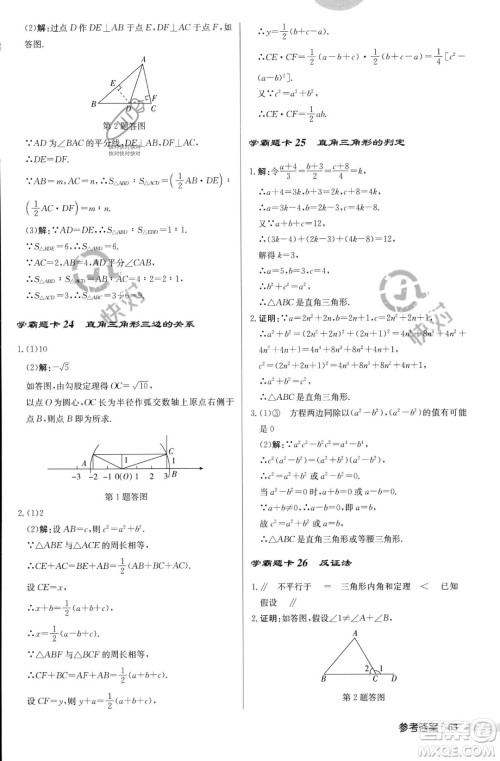 (2)解:过点 D 作 DE⊥AB 于点 E,DF⊥AC 于点 F,如
答图.
A
E
F
B
D
C
第 2 题答图
∵AD 为∠BAC 的平分线,∴DE=DF.
∵AB=m,AC=n,∴S△ABD∶S△ACD=(1/2 AB·DE)∶
(1/2 AC·DF)=m∶n.
(3)解:∵AD=DE,∴由(1)知,S△ABD=S△EBD.
∵S△BDE=6,∴S△ABD=6.
∵AC=2,AB=4,AD 平分∠BAC,
∴S△ABD∶S△ACD=AB∶AC=4∶2=2∶1.
∴S△ACD=3.
∴S△ABC=3+6=9.
学霸题卡 24 直角三角形三边的关系
1.(1)10
(2)解:-√5
如答图,由勾股定理得 OC=√10,
以点 O 为圆心,OC 长为半径作弧交数轴上原点右侧于
点 B,则点 B 即为所求.
A C
1
-3 -2 -1 0(O) 1 2 3 B
第 1 题答图
2.(1)2
(2)解:设 AB=c,则 c²=a²+b².
∵△ABE 与△ACE 的周长相等,
∴CE+AC=AE+AB=1/2(a+b+c).
设 CE=x,
∴x+b=1/2(a+b+c).
∴x=1/2(a-b+c).
∵△ABF 与△BCF 的周长相等,
∴CF+BC=AF+AB=1/2(a+b+c).
设 CF=y,则 y+a=1/2(a+b+c),
∴y=1/2(b-a+c).
∴CE·CF=1/2(a-b+c)·1/2(b-a+c)=1/4[c²-
(a-b)²].
又∵c²=a²+b²,
∴CE·CF=1/2ab.
学霸题卡 25 直角三角形的判定
1.解:令(a+4)/3=(b+3)/2=(c+8)/4=k,
∴a=3k-4,b=2k-3,c=4k-8.
又∵a+b+c=12,
∴(3k-4)+(2k-3)+(4k-8)=12.
解得 k=3.
∴a=5,b=3,c=4.
∴△ABC 是直角三角形.
2.证明:∵a=n²-1,b=2n,c=n²+1,
∴a²+b²=(n²-1)²+(2n)²=n⁴-2n²+1+4n²=n⁴+
2n²+1=(n²+1)²=c².
∴△ABC 是直角三角形.
3.(1)③ 方程两边同除以(a²-b²),(a²-b²)的值有可能
是 0
(2)解:∵a²c²-b²c²=a⁴-b⁴,
∴c²(a²-b²)=(a²+b²)(a²-b²).
∴a²-b²=0 或 c²=a²+b².
当 a²-b²=0 时,a=b;
当 c²=a²+b² 时,∠C=90°,
∴△ABC 是直角三角形或等腰三角形.
学霸题卡 26 反证法
1.∥ 不平行于 = 三角形内角和定理 < 已知
假设 ∥
2.证明:假设∠1≠∠2,如答图.
A
B
2
1
第 2 题答图
参考答案 63
快对
快对